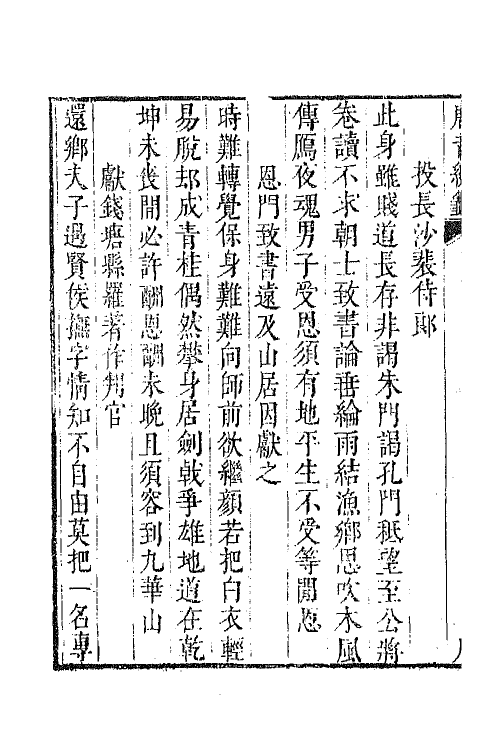 投長沙裴侍郎
此身雖賤道長存非謁朱門謁孔門秪望至公將
卷讀不求朝士致書論垂綸雨結漁鄉思吹木風
傳鴈夜魂男子受恩須有地平生不受等閒恩
恩門致書遠及山居因獻之
時難轉覺保身難難向師前欲繼顔若把白衣輕
易脫却成青桂偶然攀身居劍戟爭雄地道在乾
坤未喪間必許酬恩酬未晚且須容到九華山
獻錢塘縣羅著作判官
還鄉夫子遇賢侯撫字情知不自由莫把一名專